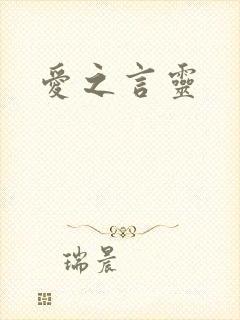 愛之言靈
瑞晨